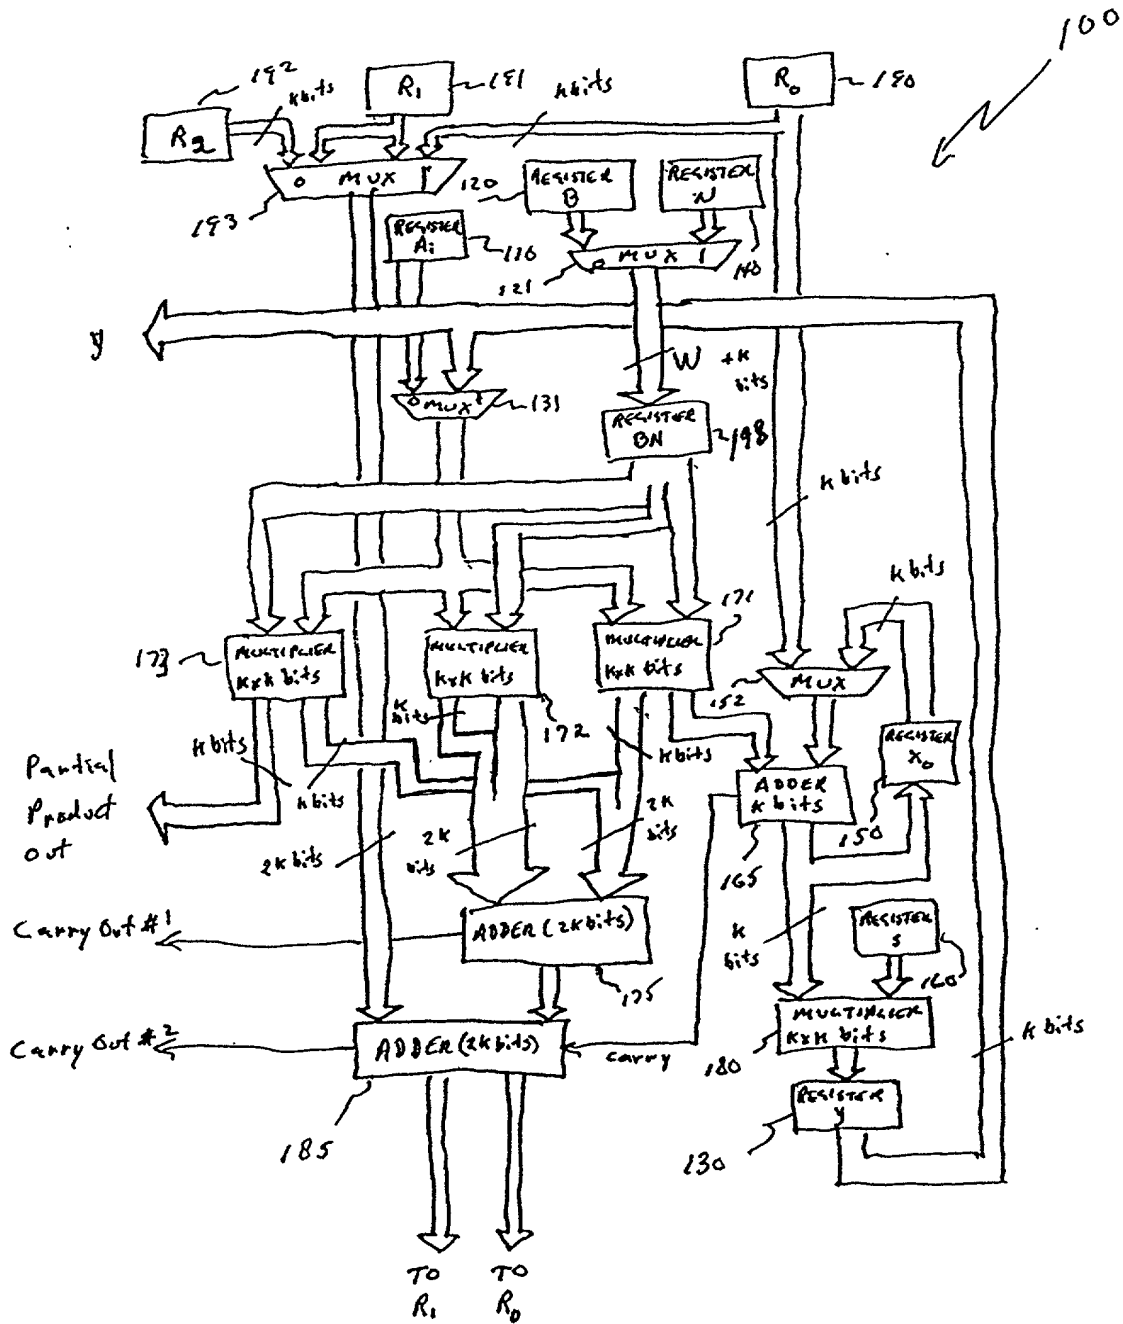 100
192
k bits
R1
191
k bits
R0
190
R2
0 MUX 1
193
120
REGISTER
B
REGISTER
N
REGISTER
Ai
110
0 MUX 1
121
140
y
W + k
bits
0 MUX 1
131
REGISTER
BN
198
k bits
k bits
171
173
MULTIPLIER
k x k bits
MULTIPLIER
k x k bits
MULTIPLIER
k x k bits
152
MUX
k
bits
172
k bits
k bits
k bits
REGISTER
X0
Partial
Product
out
ADDER
k bits
150
2k bits
2k
bits
2k
bits
165
Carry Out #1
ADDER (2k bits)
175
k
bits
REGISTER
S
160
Carry Out #2
ADDER (2k bits)
carry
MULTIPLIER
k x k bits
180
k bits
185
REGISTER
y
130
TO
R1
TO
R0